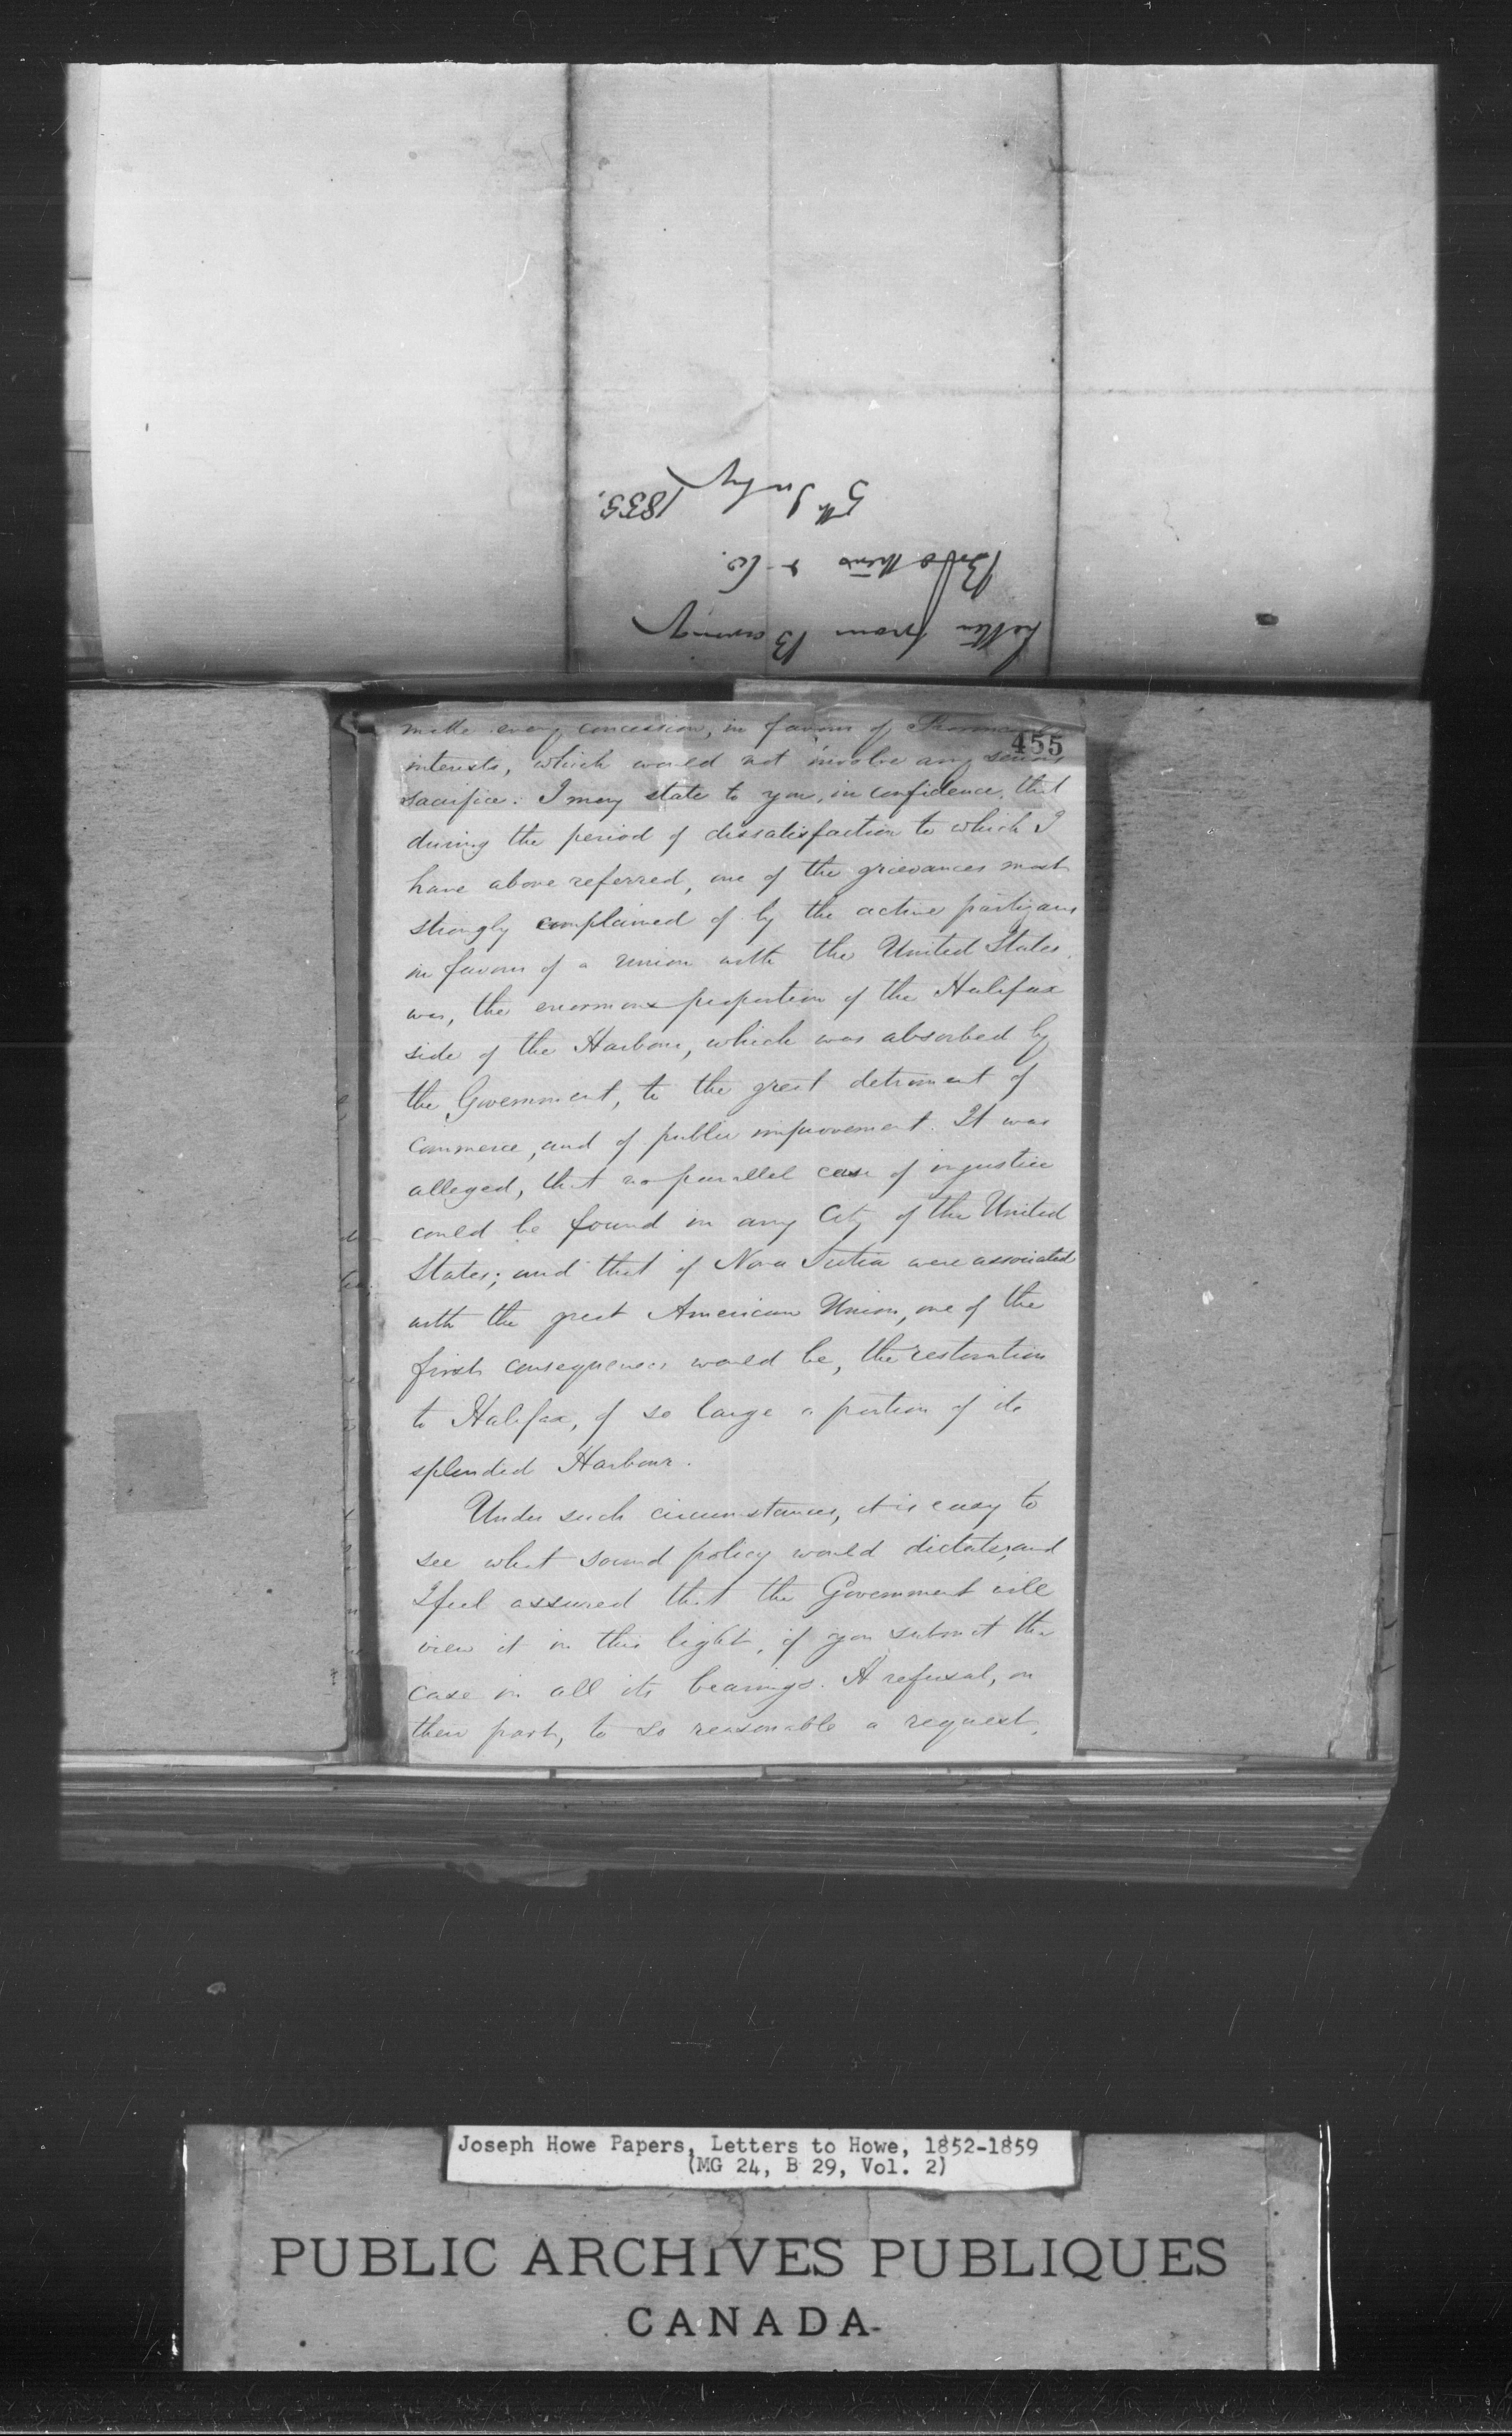 Letter from Baring
Brothers & Co.
5th July 1855.
455
make every concession, in favour of Provincial
interests, which would not involve any serious
sacrifice. I may state to you, in confidence, that
during the period of dissatisfaction to which I
have above referred, one of the grievances most
strongly complained of by the active partizans
in favour of a union with the United States,
was, the enormous proportion of the Halifax
side of the Harbour, which was absorbed by
the Government, to the great detriment of
commerce, and of public improvement. It was
alleged, that no parallel case of injustice
could be found in any City of the United
States; and that if Nova Scotia were associated
with the great American Union, one of the
first consequences would be, the restoration
to Halifax, of so large a portion of its
splendid Harbour.
Under such circumstances, it is easy to
see what sound policy would dictate, and
I feel assured that the Government will
view it in this light, if you submit the
case in all its bearings. A refusal, on
their part, to so reasonable a request,
Joseph Howe Papers, Letters to Howe, 1852-1859
(MG 24, B 29, Vol. 2)
PUBLIC ARCHIVES PUBLIQUES
CANADA